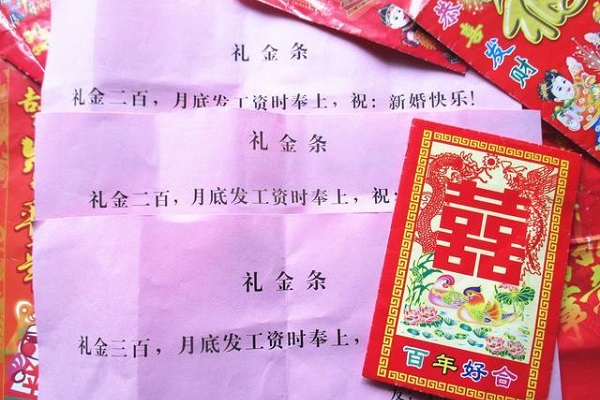 礼金条
礼金二百，月底发工资时奉上，祝：新婚快乐！
礼金条
礼金二百，月底发工资时奉上，祝：
礼金条
礼金三百，月底发工资时奉上，
友：
囍
百年好合
恭喜发财